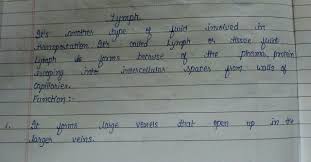 Lymph
It's another type of fluid involved in
transportation. It's called lymph or tissue fluid
Lymph is forms because of the plasma protein
into intercellular spaces from walls of
capillaries.
Function :-
1. It forms large vessels that open up in the
larger veins.